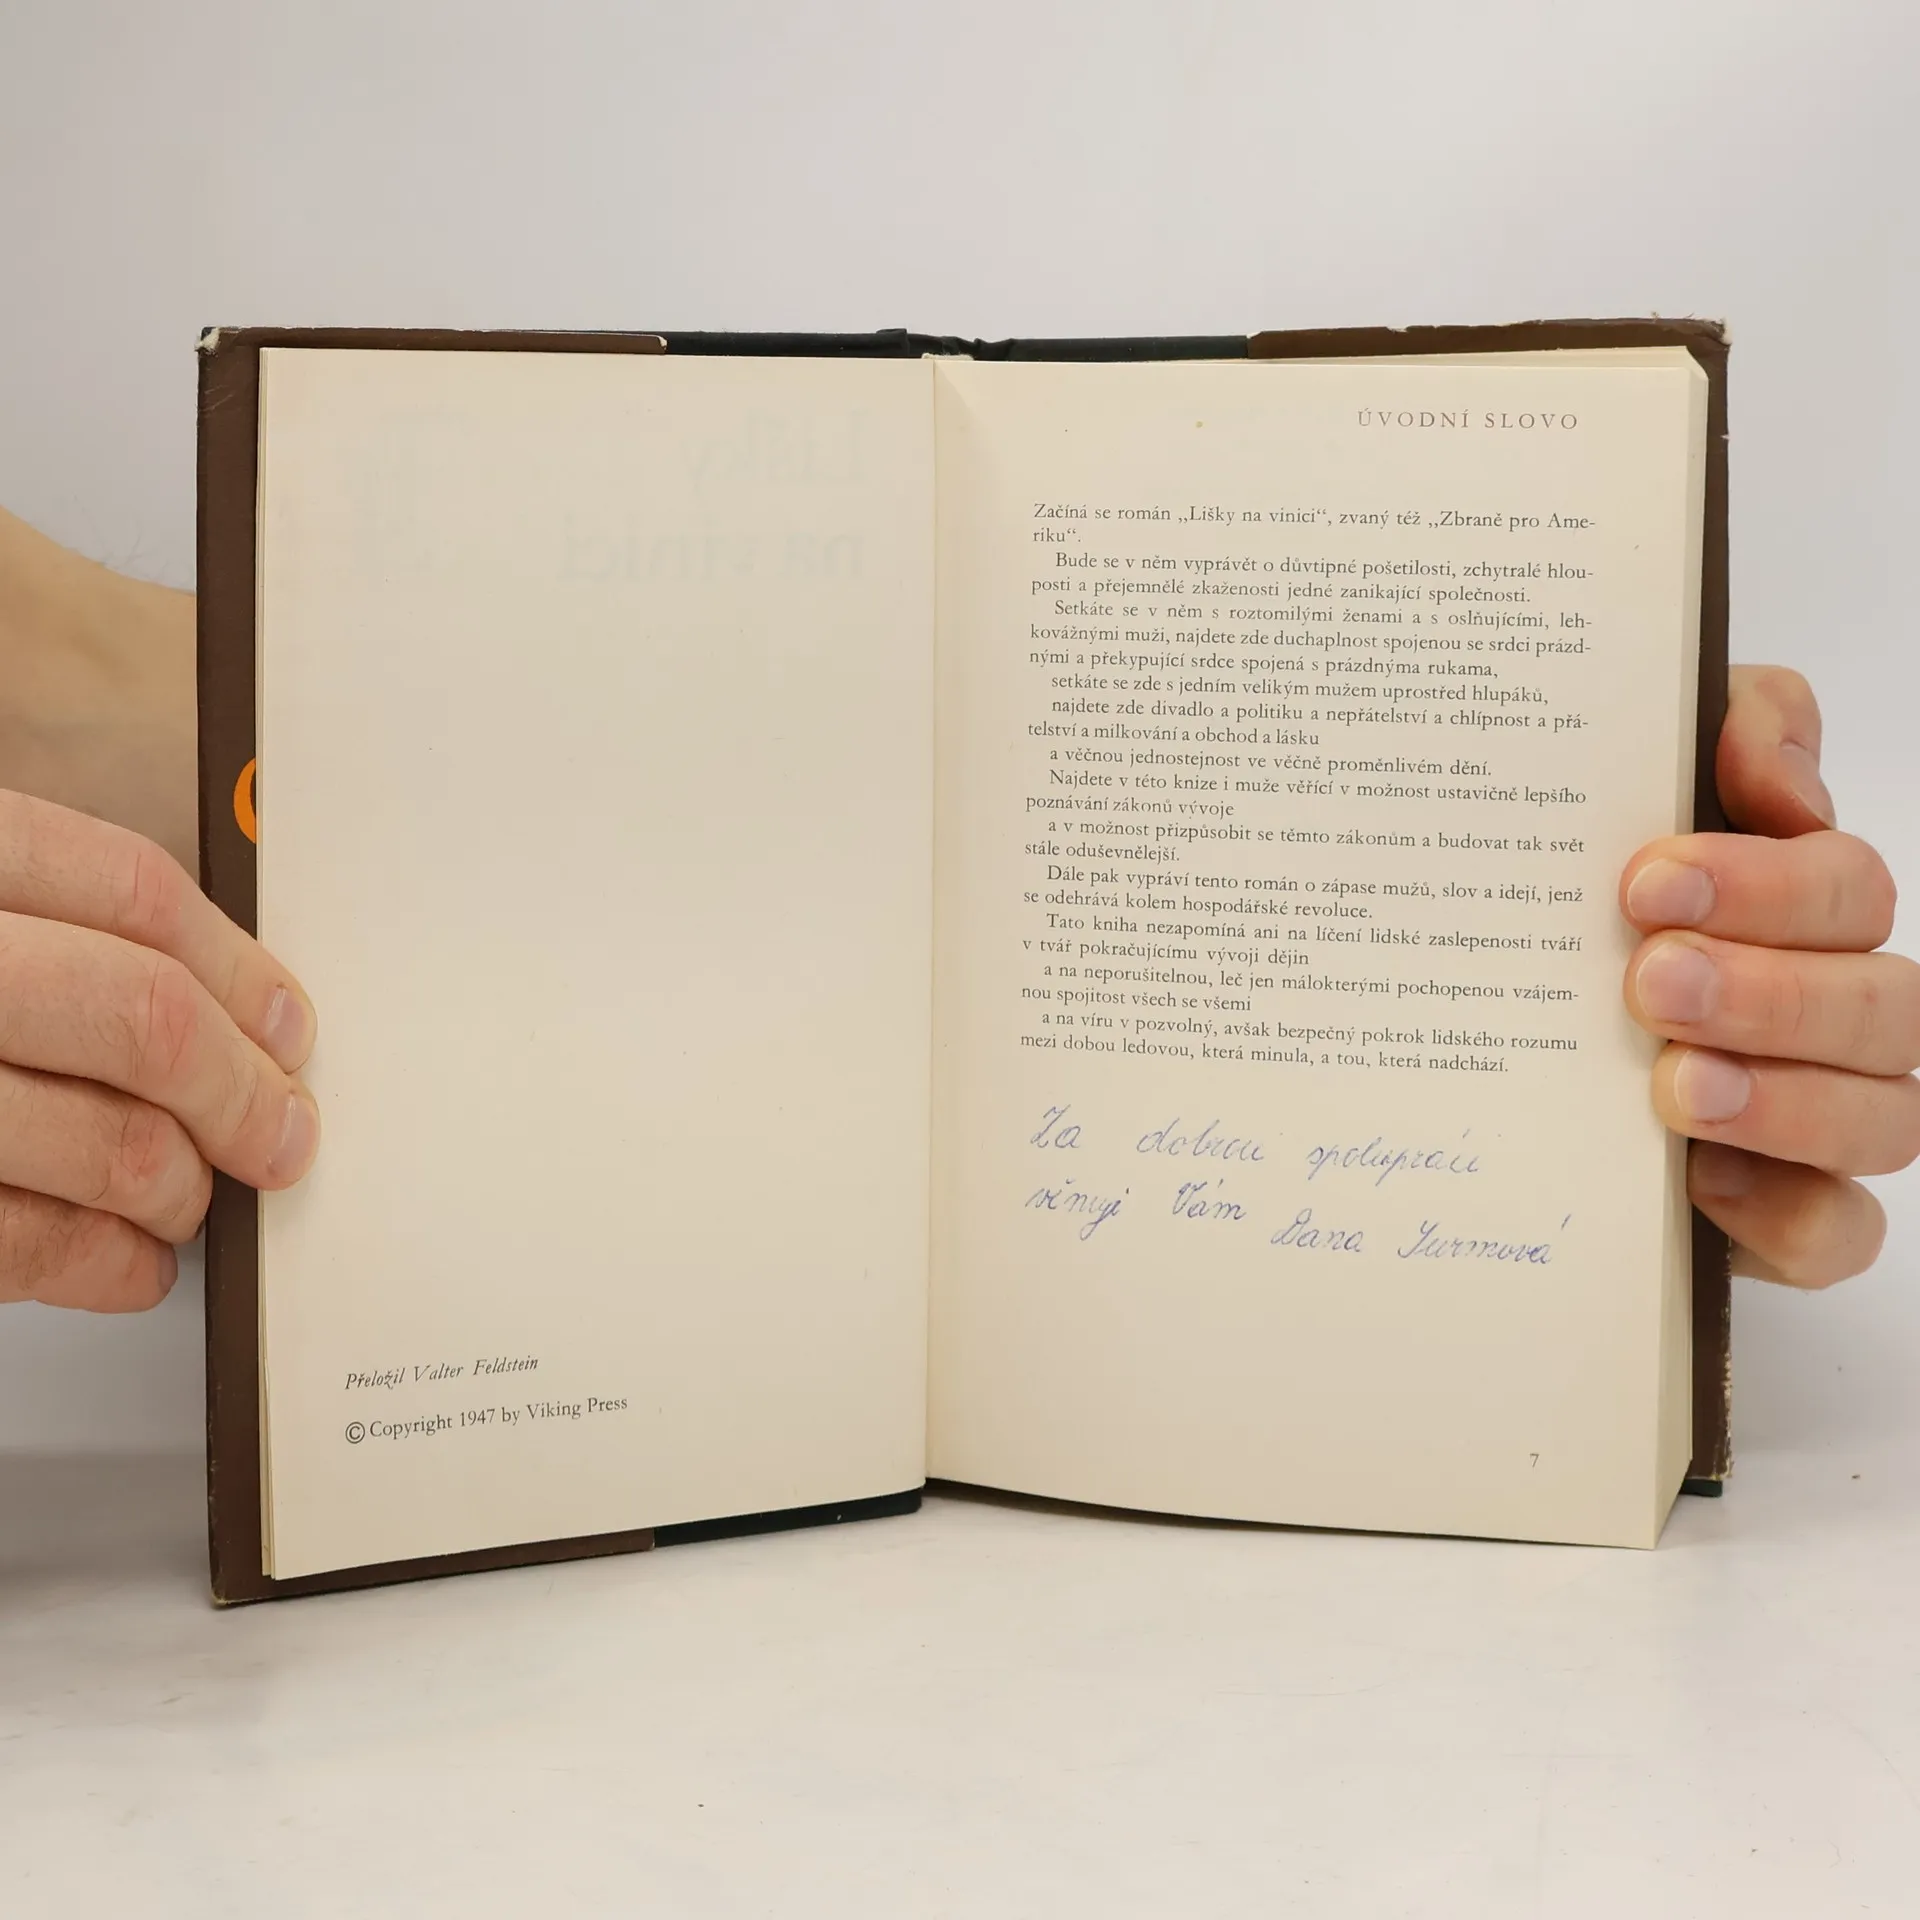 Přeložil Valter Feldstein
© Copyright 1947 by Viking Press
ÚVODNÍ SLOVO
Začíná se román „Lišky na vinici“, zvaný též „Zbraně pro Ame-
riku“.
Bude se v něm vyprávět o důvtipné pošetilosti, zchytralé hlou-
posti a přejemnělé zkaženosti jedné zanikající společnosti.
Setkáte se v něm s roztomilými ženami a s oslňujícími, leh-
kovážnými muži, najdete zde duchaplnost spojenou se srdci prázd-
nými a překypující srdce spojená s prázdnýma rukama,
setkáte se zde s jedním velikým mužem uprostřed hlupáků,
najdete zde divadlo a politiku a nepřátelství a chlípnost a přá-
telství a milkování a obchod a lásku
a věčnou jednostejnost ve věčně proměnlivém dění.
Najdete v této knize i muže věřící v možnost ustavičně lepšího
poznávání zákonů vývoje
a v možnost přizpůsobit se těmto zákonům a budovat tak svět
stále oduševnělejší.
Dále pak vypráví tento román o zápase mužů, slov a idejí, jenž
se odehrává kolem hospodářské revoluce.
Tato kniha nezapomíná ani na líčení lidské zaslepenosti tváří
v tvář pokračujícímu vývoji dějin
a na neporušitelnou, leč jen málokterými pochopenou vzájem-
nou spojitost všech se všemi
a na víru v pozvolný, avšak bezpečný pokrok lidského rozumu
mezi dobou ledovou, která minula, a tou, která nadchází.
Za dobrou spolupráci
věnuji Vám Dana
7